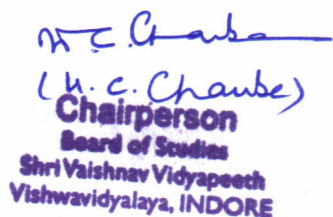 (U. C. Chaube)
Chairperson
Board of Studies
Shri Vaishnav Vidyapeeth
Vishwavidyalaya, INDORE